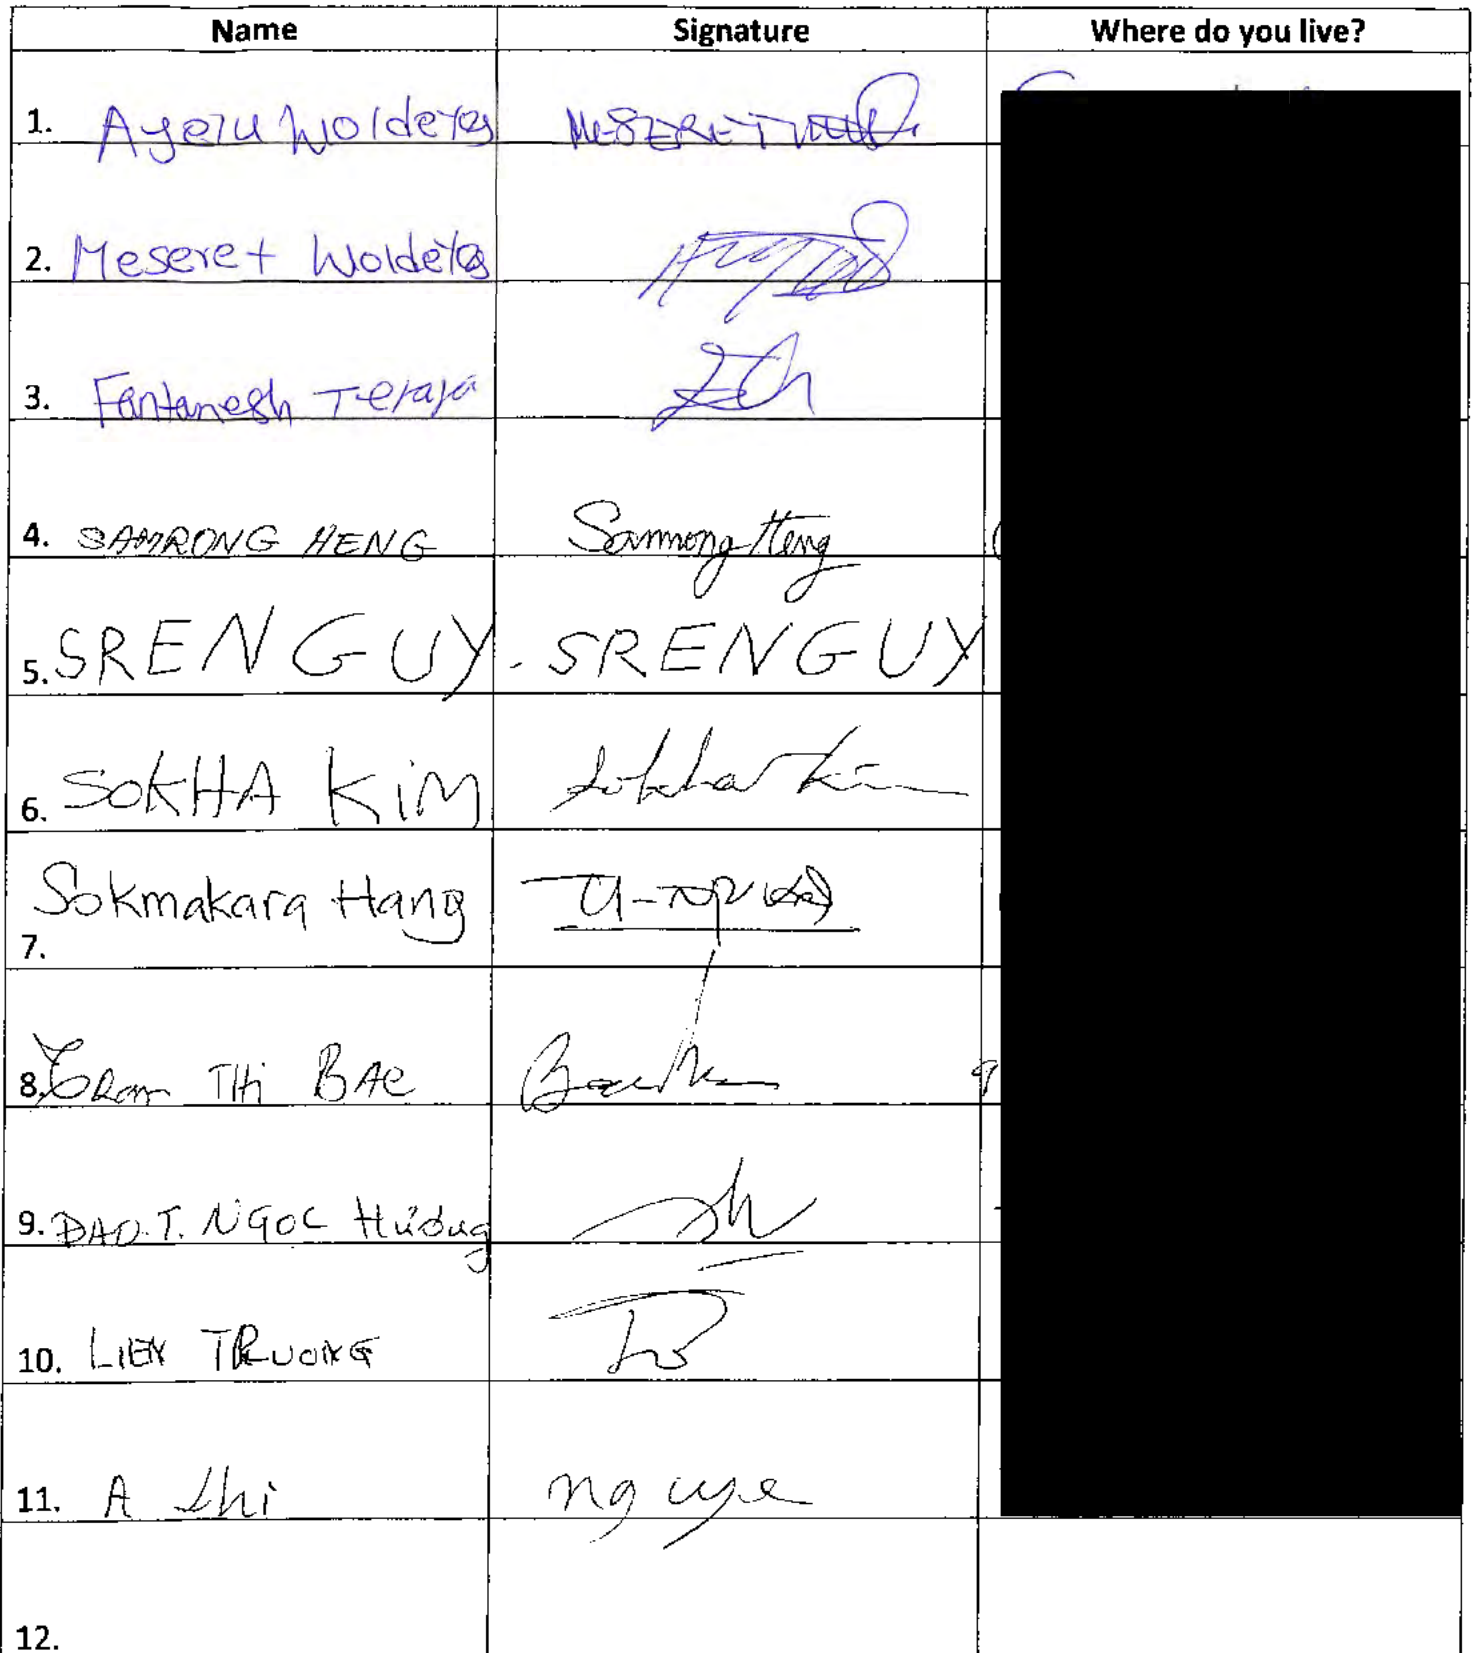 Name Signature Where do you live?
1. Ayelu Woldeyes MESERET
2. Meseret Woldeyes
3. Fantanesh Teraja
4. SAMRONG HENG Samrong Heng
5. SREN GUY. SREN GUY
6. SOKHA KiM Sokha Kim
7. Sokmakara Hang
8. Tran THi BAC
9. DAO.T. NGOC Hương
10. LIEN TRUONG
11. A Thi nguye
12.